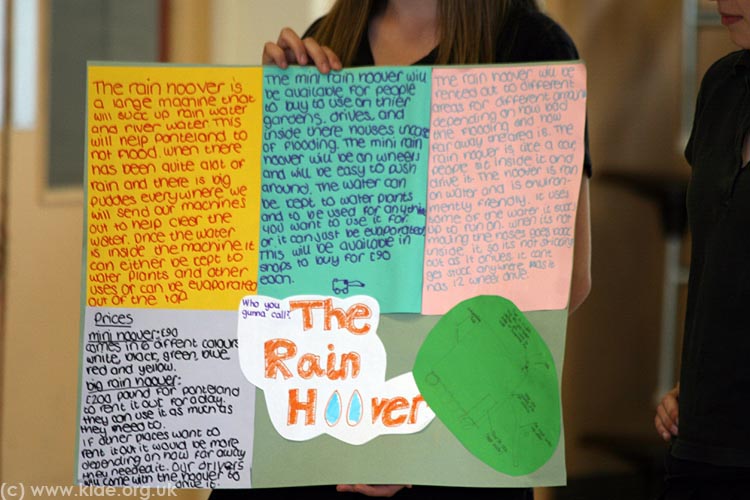 The rain hoover is
a large machine that
will suck up rain water
and river water. This
will help ponteland to
not flood. when there
has been quite alot of
rain and there is big
puddles everywhere we
will send our machines
out to help clear the
water. Once the water
is inside the machine it
can either be cept to
water plants and other
uses or can be evaporated
out of the top
The mini rain hoover will
be available for people
to buy to use on thier
gardens, drives, and
inside there houses incase
of flooding. The mini rain
hoover will be on wheels
and will be easy to push
around. The water can
be cept to water plants
and to be used for anything
you want to use it for
or it can just be evaporated
This will be available in
shops to buy for £90
each.
The rain hoover will be
rented out to different
areas for different amounts
depending on how bad
the flooding and how
far away the area is. The
rain hoover is like a car,
people sit inside it and
drive it. The hoover is ran
on water and is environ-
mently friendly. it uses
some of the water it sucks
up to run on. when its not
moving the hoses goes back
inside it so its not sticking
out as it drives. it cant
get stuck anywhere as it
has 12 wheel drive.
Prices
mini hoover: £90
comes in 6 diffrent colours
white, black, green, blue
red and yellow.
big rain hoover:
£200 pound for ponteland
to rent it out for a day.
they can use it as much as
they need to.
if other places want to
rent it out it would be more
depending on how far away
they needed it. Our drivers
will come with the hoover to
drive it.
Who you
gunna call?
The
Rain
Hoover
(c) www.klde.org.uk